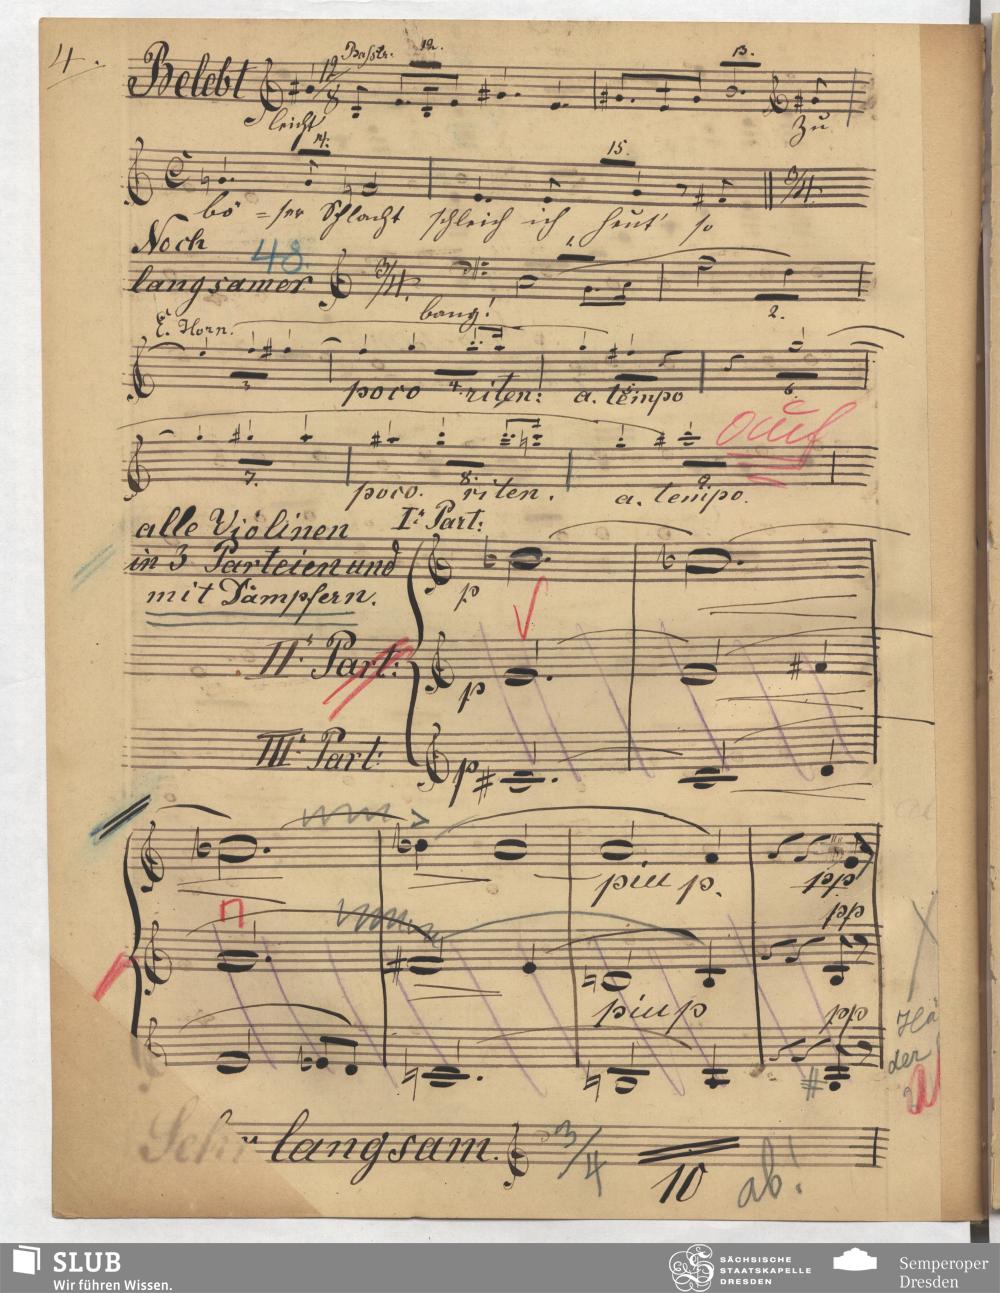 4.
Belebt 12/8 Bassklr. 12. 13.
leicht Zu
14. 15. 3/4
bö = ser Schlacht schleich ich heut' so
Noch
langsamer 48 3/4 1.
bang! 2.
E. Horn.
3 poco 4 riten: a. tempo 5 6.
auf
7. poco. 8. riten. a. tempo. 9.
alle Violinen Ir Part:
in 3 Parteien und
mit Dämpfern. p
IIr Part: p
IIIr Part: p
più p. pp
pp
più p pp
der
2
Sehr langsam. 3/4 10 ab!
SLUB
Wir führen Wissen.
SÄCHSISCHE
STAATSKAPELLE
DRESDEN
Semperoper
Dresden